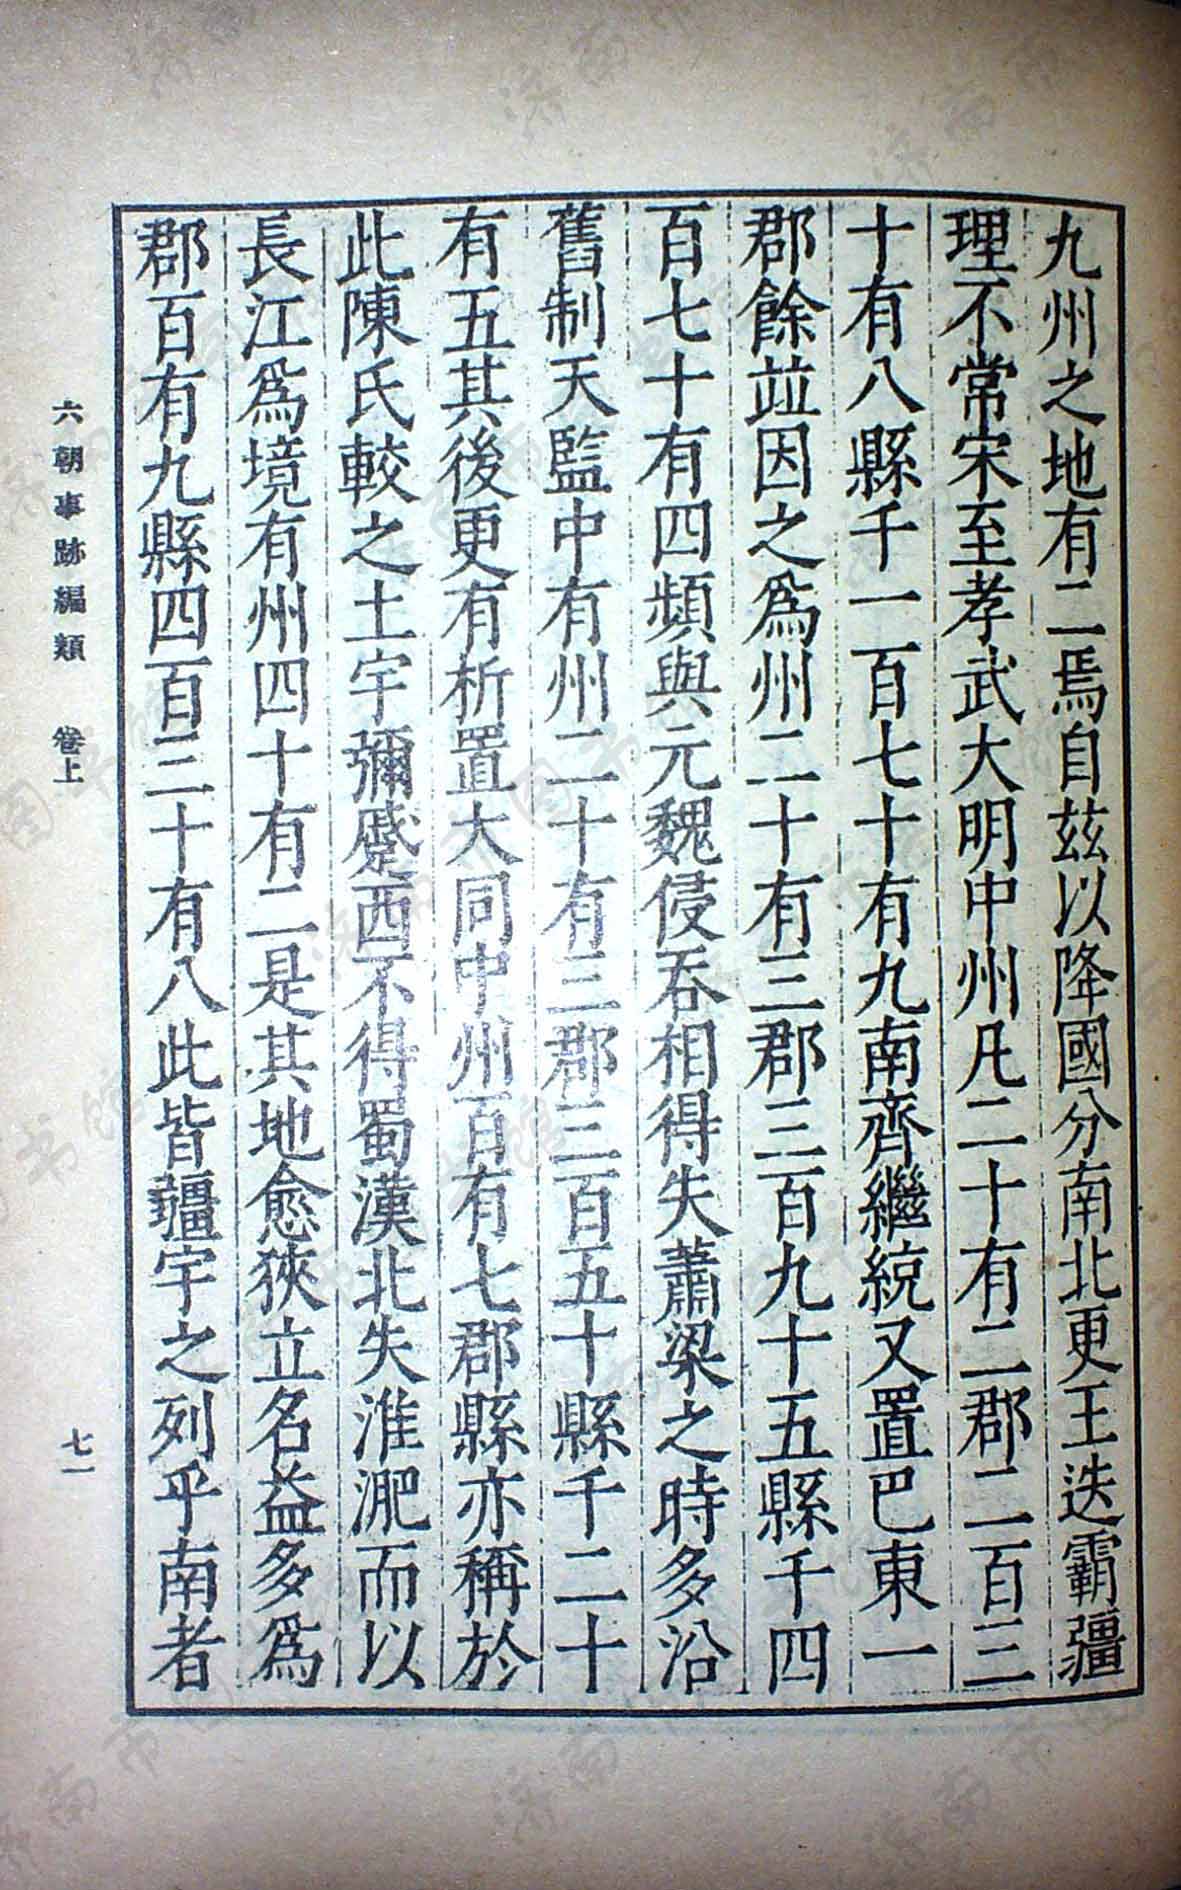 九州之地有二焉自玆以降國分南北更王迭霸疆
理不常宋至孝武大明中州凡二十有二郡二百三
十有八縣千一百七十有九南齊繼統又置巴東一
郡餘竝因之爲州二十有三郡三百九十五縣千四
百七十有四頻與元魏侵吞相得失蕭梁之時多沿
舊制天監中有州二十有三郡三百五十縣千二十
有五其後更有析置大同中州百有七郡縣亦稱於
此陳氏較之土宇彌蹙西不得蜀漢北失淮淝而以
長江爲境有州四十有二是其地愈狹立名益多爲
郡百有九縣四百三十有八此皆疆宇之列乎南者
六朝事跡編類 卷上
七一